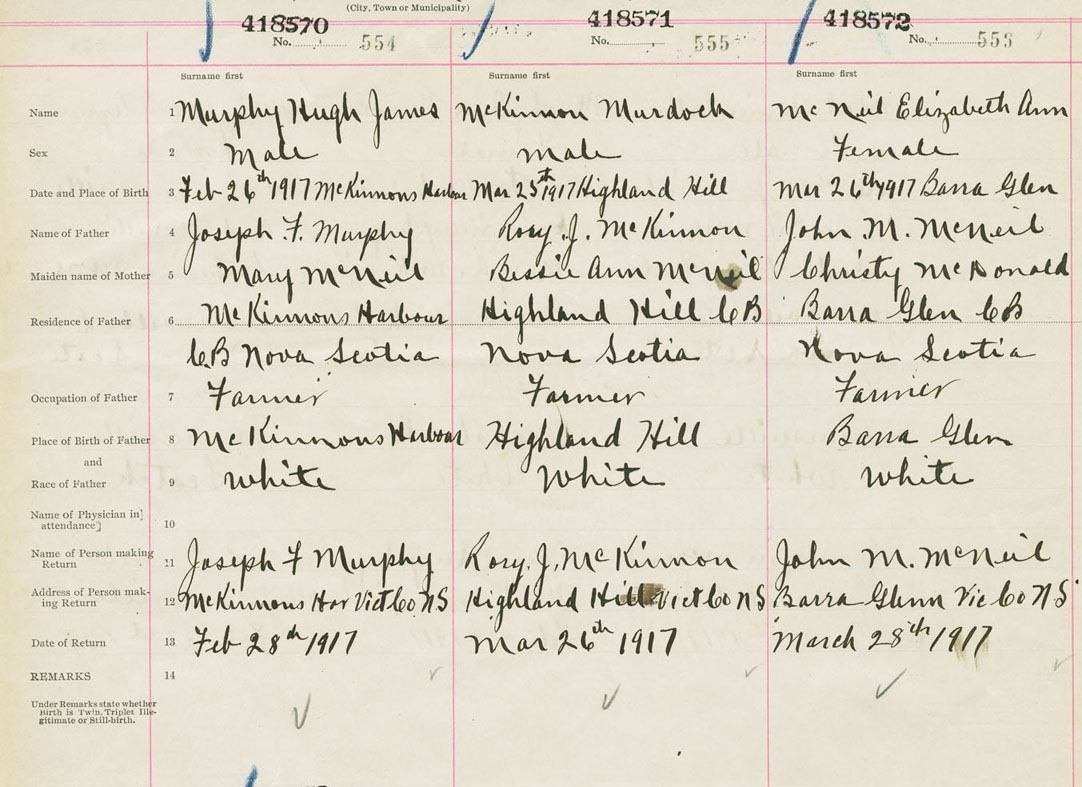 (City, Town or Municipality)
418570 418571 418572
No. 554 No. 555 No. 556
Surname first Surname first Surname first
Name 1 Murphy Hugh James McKinnon Murdoch McNeil Elizabeth Ann
Sex 2 Male Male Female
Date and Place of Birth 3 Feb 26th 1917 McKinnons Harbour Mar 25th 1917 Highland Hill Mar 26th 1917 Barra Glen
Name of Father 4 Joseph F. Murphy Rory. J. McKinnon John. M. McNeil
Maiden name of Mother 5 Mary McNeil Bessie Ann McNeil Christy McDonald
Residence of Father 6 McKinnons Harbour Highland Hill CB Barra Glen CB
C.B Nova Scotia Nova Scotia Nova Scotia
Occupation of Father 7 Farmer Farmer Farmer
Place of Birth of Father 8 McKinnons Harbour Highland Hill Barra Glen
and
Race of Father 9 White White White
Name of Physician in
attendance 10
Name of Person making
Return 11 Joseph F Murphy Rory. J. McKinnon John M. McNeil
Address of Person mak-
ing Return 12 McKinnons Har Vict Co NS Highland Hill Vict Co NS Barra Glenn Vic Co NS
Date of Return 13 Feb 28th 1917 Mar 26th 1917 March 28th 1917
REMARKS 14
Under Remarks state whether
Birth is Twin, Triplet, Ille-
gitimate or Still-birth.